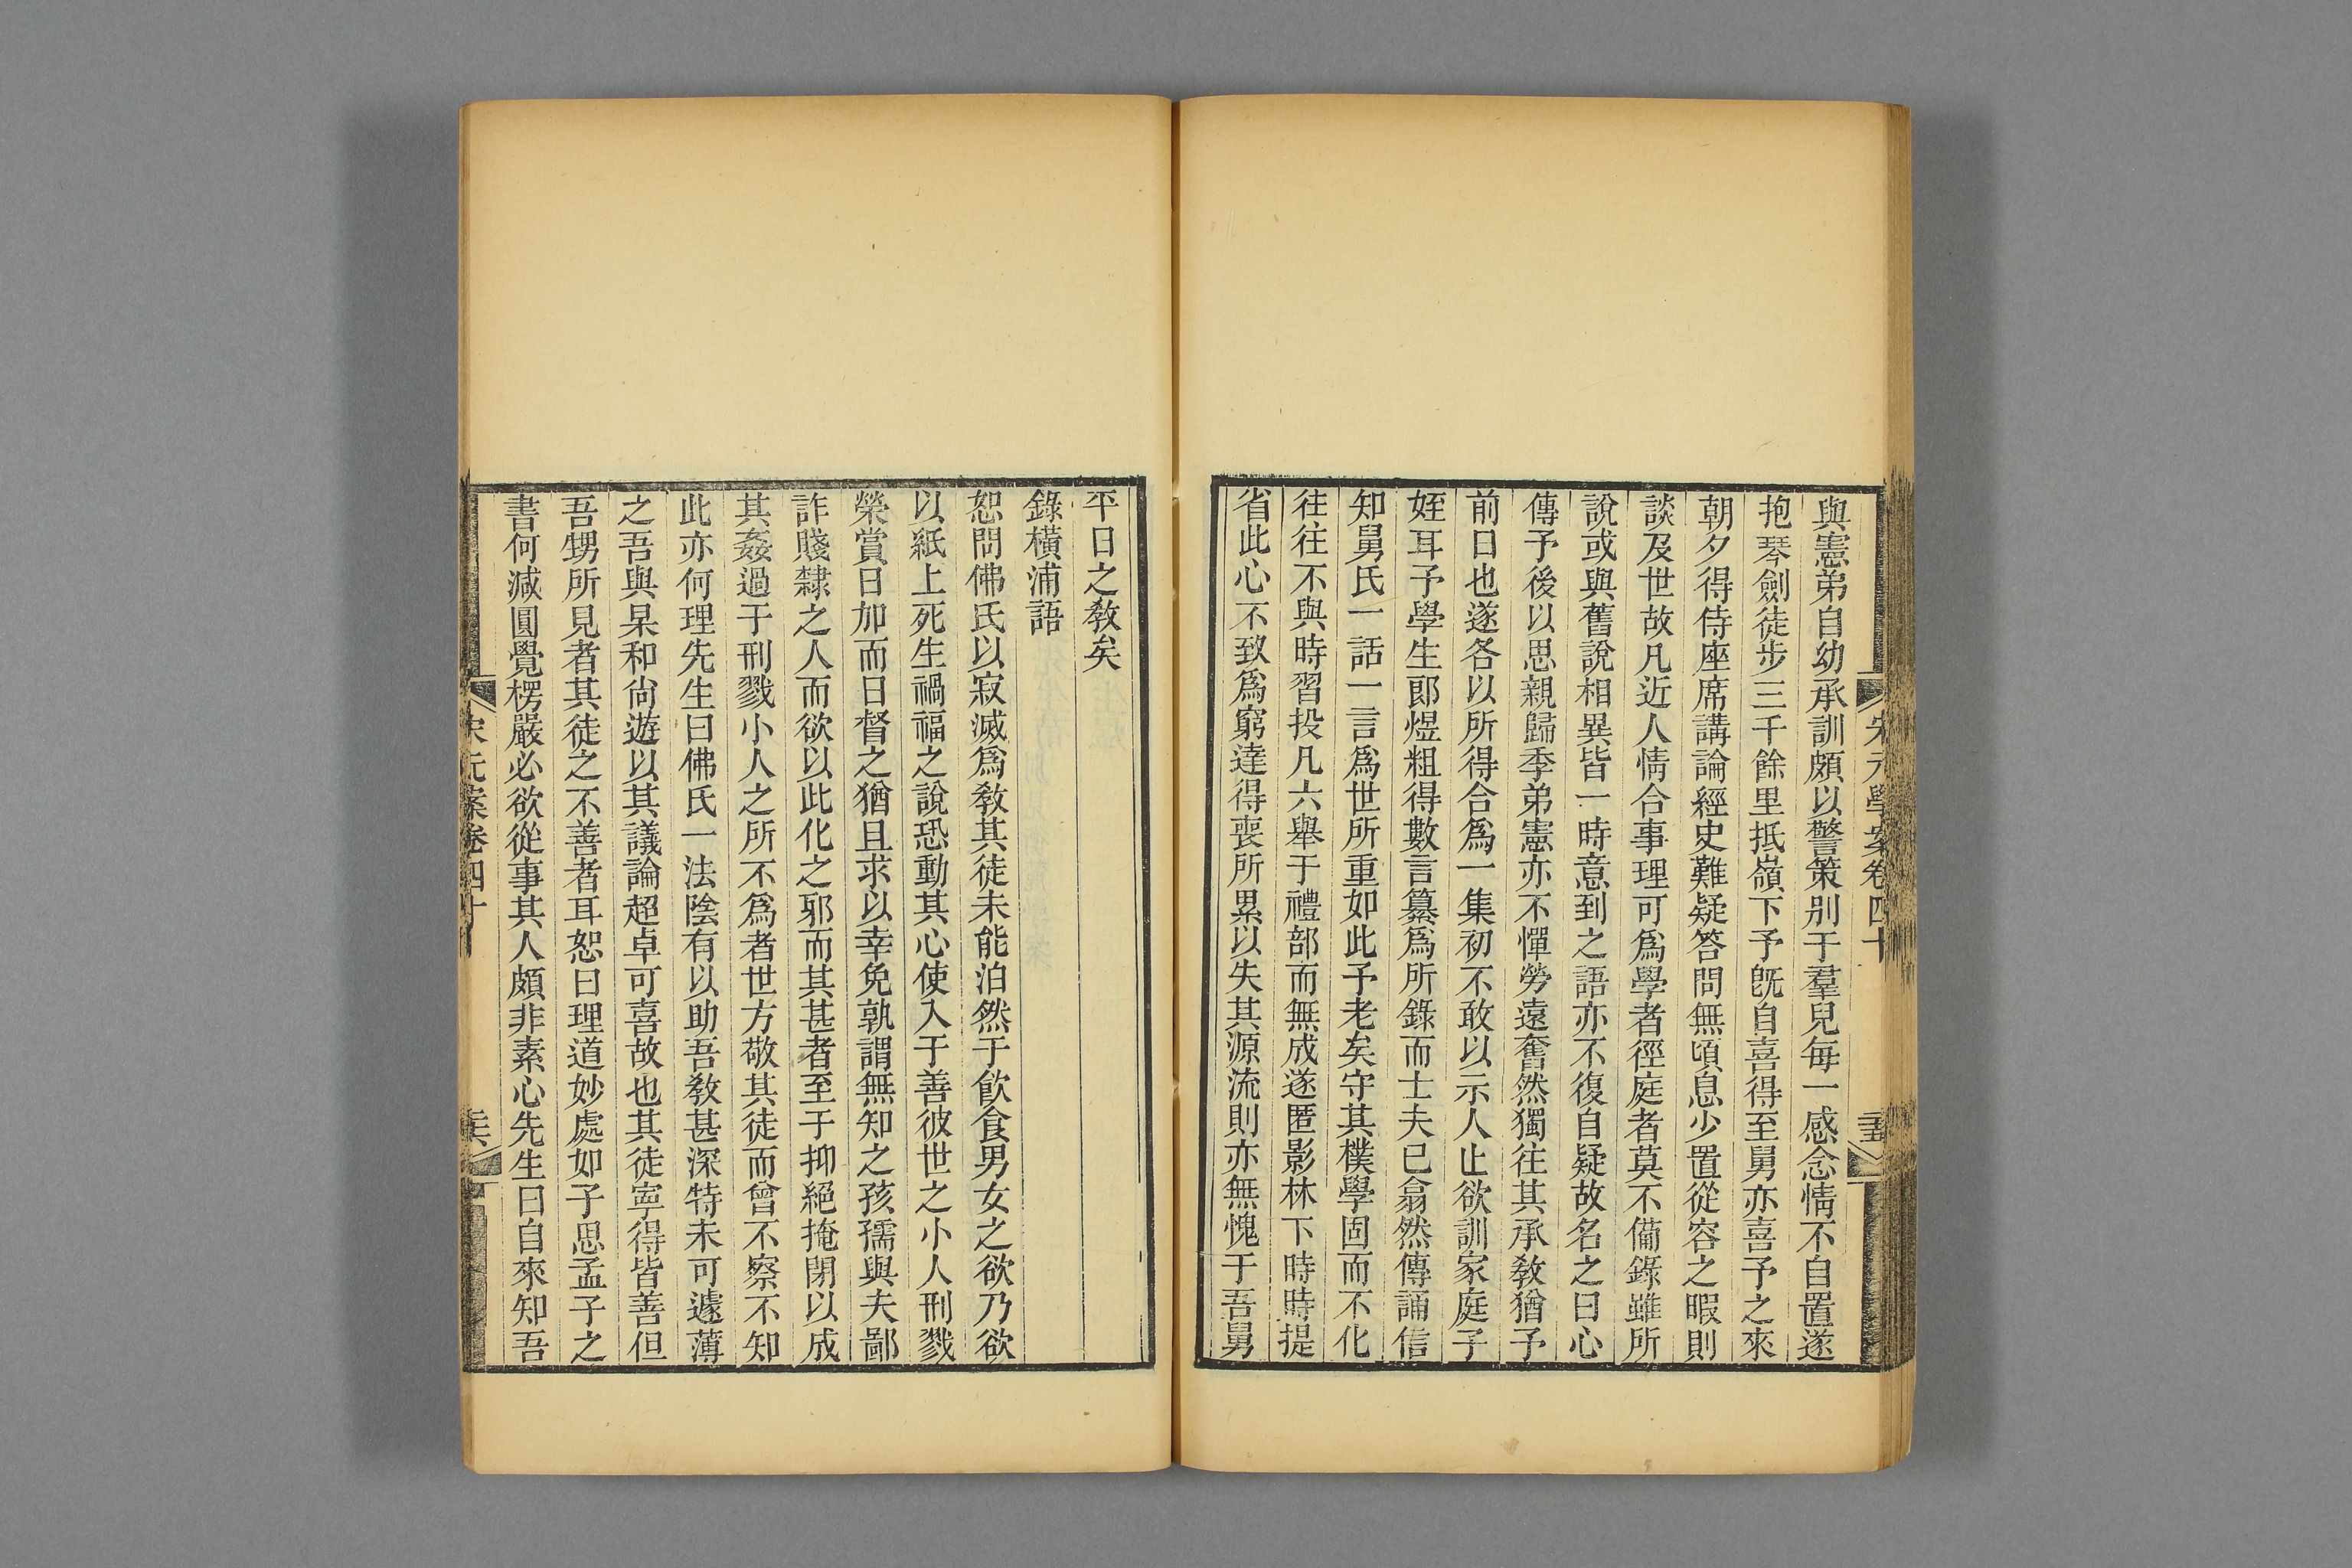 宋元學案卷四十
與憲弟自幼承訓頗以警策别于羣兒每一感念情不自置遂
抱琴劍徒步三千餘里抵嶺下予旣自喜得至舅亦喜予之來
朝夕得侍座席講論經史難疑答問無頃息少置從容之暇則
談及世故凡近人情合事理可爲學者徑庭者莫不備錄雖所
說或與舊說相異皆一時意到之語亦不復自疑故名之曰心
傳予後以思親歸季弟憲亦不憚勞遠奮然獨往其承敎猶予
前日也遂各以所得合爲一集初不敢以示人止欲訓家庭子
姪耳予學生郎煜粗得數言纂爲所錄而士夫已翕然傳誦信
知舅氏一話一言爲世所重如此予老矣守其樸學固而不化
往往不與時習投凡六舉于禮部而無成遂匿影林下時時提
省此心不致爲窮達得喪所累以失其源流則亦無愧于吾舅
平日之敎矣
錄橫浦語
恕問佛氏以寂滅爲敎其徒未能泊然于飮食男女之欲乃欲
以紙上死生禍福之說恐動其心使入于善彼世之小人刑戮
榮賞日加而日督之猶且求以幸免孰謂無知之孩孺與夫鄙
詐賤隸之人而欲以此化之邪而其甚者至于抑絕掩閉以成
其姦過于刑戮小人之所不爲者世方敬其徒而曾不察不知
此亦何理先生曰佛氏一法陰有以助吾敎甚深特未可遽薄
之吾與杲和尙遊以其議論超卓可喜故也其徒寧得皆善但
吾甥所見者其徒之不善者耳恕曰理道妙處如子思孟子之
書何減圓覺楞嚴必欲從事其人頗非素心先生曰自來知吾
卷四十